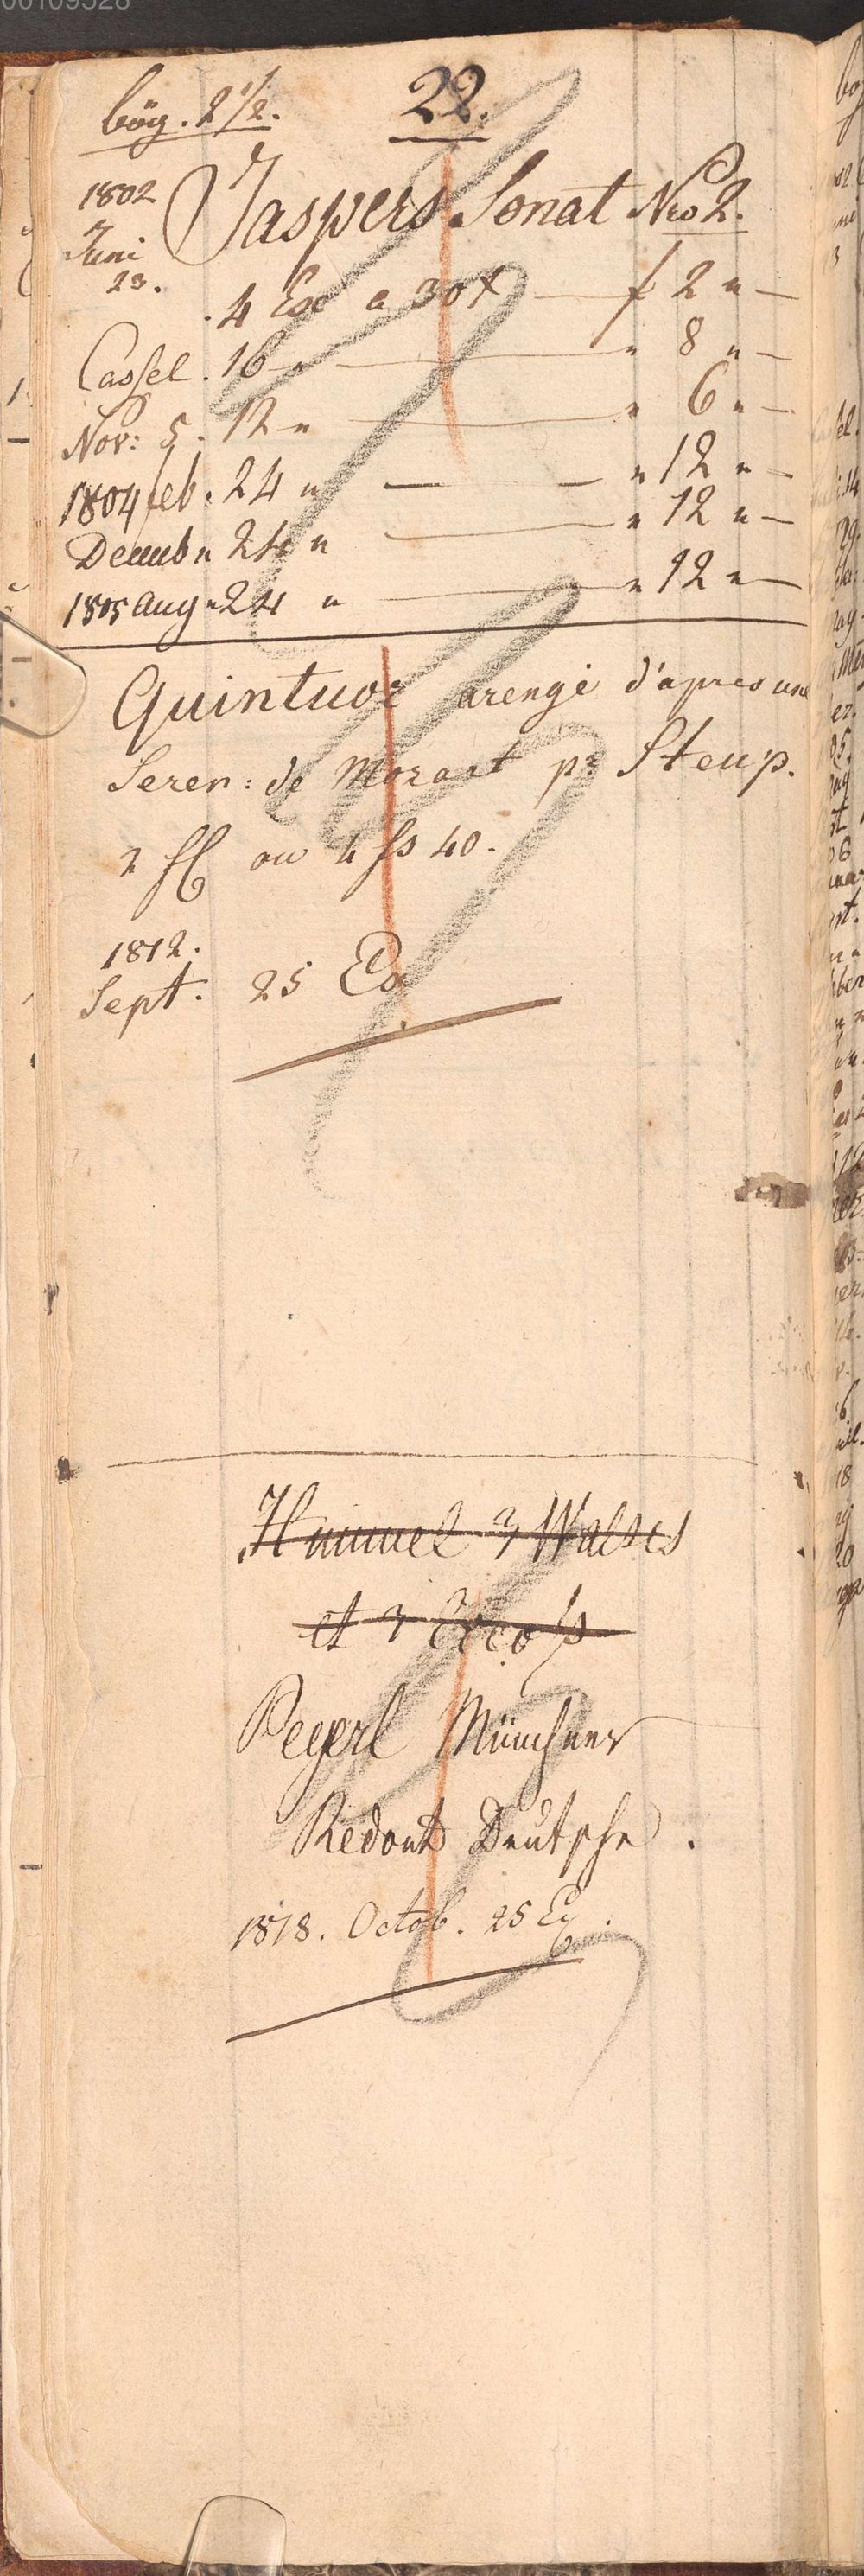 00109528
bög. 2 1/2. 22.
1802 Jaspers Sonat Nro 2.
Juni
23.
. 4 Ex a 30 x — f 2 " —
Cassel . 16 " — " 8 " —
Nov: 5 . 12 " — " 6 " —
1804 feb . 24 " — " 12 " —
Decemb " 24 " — " 12 " —
1805 aug " 24 " — " 12 " —
Quintuor arengé d'apres une
Seren: de Mozart pr Steup.
ou 4 40.
1812.
Sept. 25 Ex
Himmel 3 Walses
et 3 Ecoss
Peyerl Münchner
Redout Deutsche.
1818. Octob. 25 Ex.